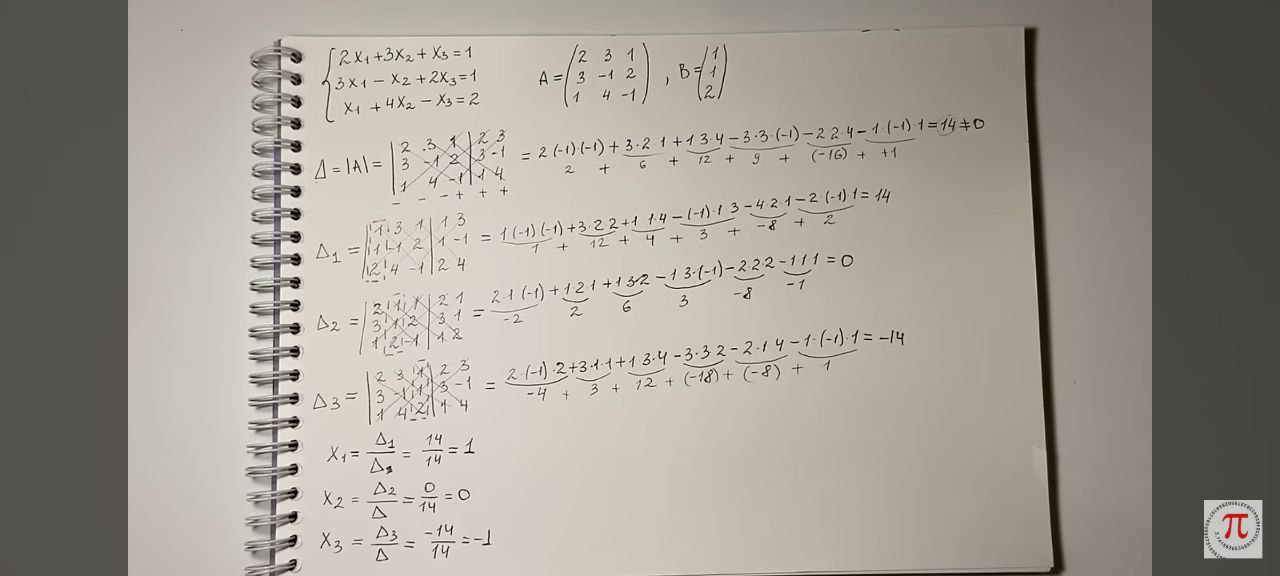 2x₁+3x₂+x₃=1
3x₁-x₂+2x₃=1
x₁+4x₂-x₃=2
A= 2 3 1
3 -1 2
1 4 -1
, B= 1
1
2
Δ=|A|= 2 3 1 2 3
3 -1 2 3 -1
1 4 -1 1 4
- - - + + +
= 2(-1)·(-1)+3·2·1+1·3·4-3·3·(-1)-2·2·4-1·(-1)·1=14≠0
2 + 6 + 12 + 9 + (-16) + +1
Δ₁= 1 3 1 1 3
1 -1 2 1 -1
2 4 -1 2 4
= 1(-1)(-1)+3·2·2+1·1·4-(-1)·1·3-4·2·1-2·(-1)·1=14
1 + 12 + 4 + 3 + -8 + 2
Δ₂= 2 1 1 2 1
3 1 2 3 1
1 2 -1 1 2
= 2·1(-1)+1·2·1+1·3·2-1·3·(-1)-2·2·2-1·1·1=0
-2 2 6 3 -8 -1
Δ₃= 2 3 1 2 3
3 -1 1 3 -1
1 4 2 1 4
= 2·(-1)·2+3·1·1+1·3·4-3·3·2-2·1·4-1·(-1)·1=-14
-4 + 3 + 12 + (-18) + (-8) + 1
x₁=Δ₁/Δ=14/14=1
x₂=Δ₂/Δ=0/14=0
x₃=Δ₃/Δ=-14/14=-1
π